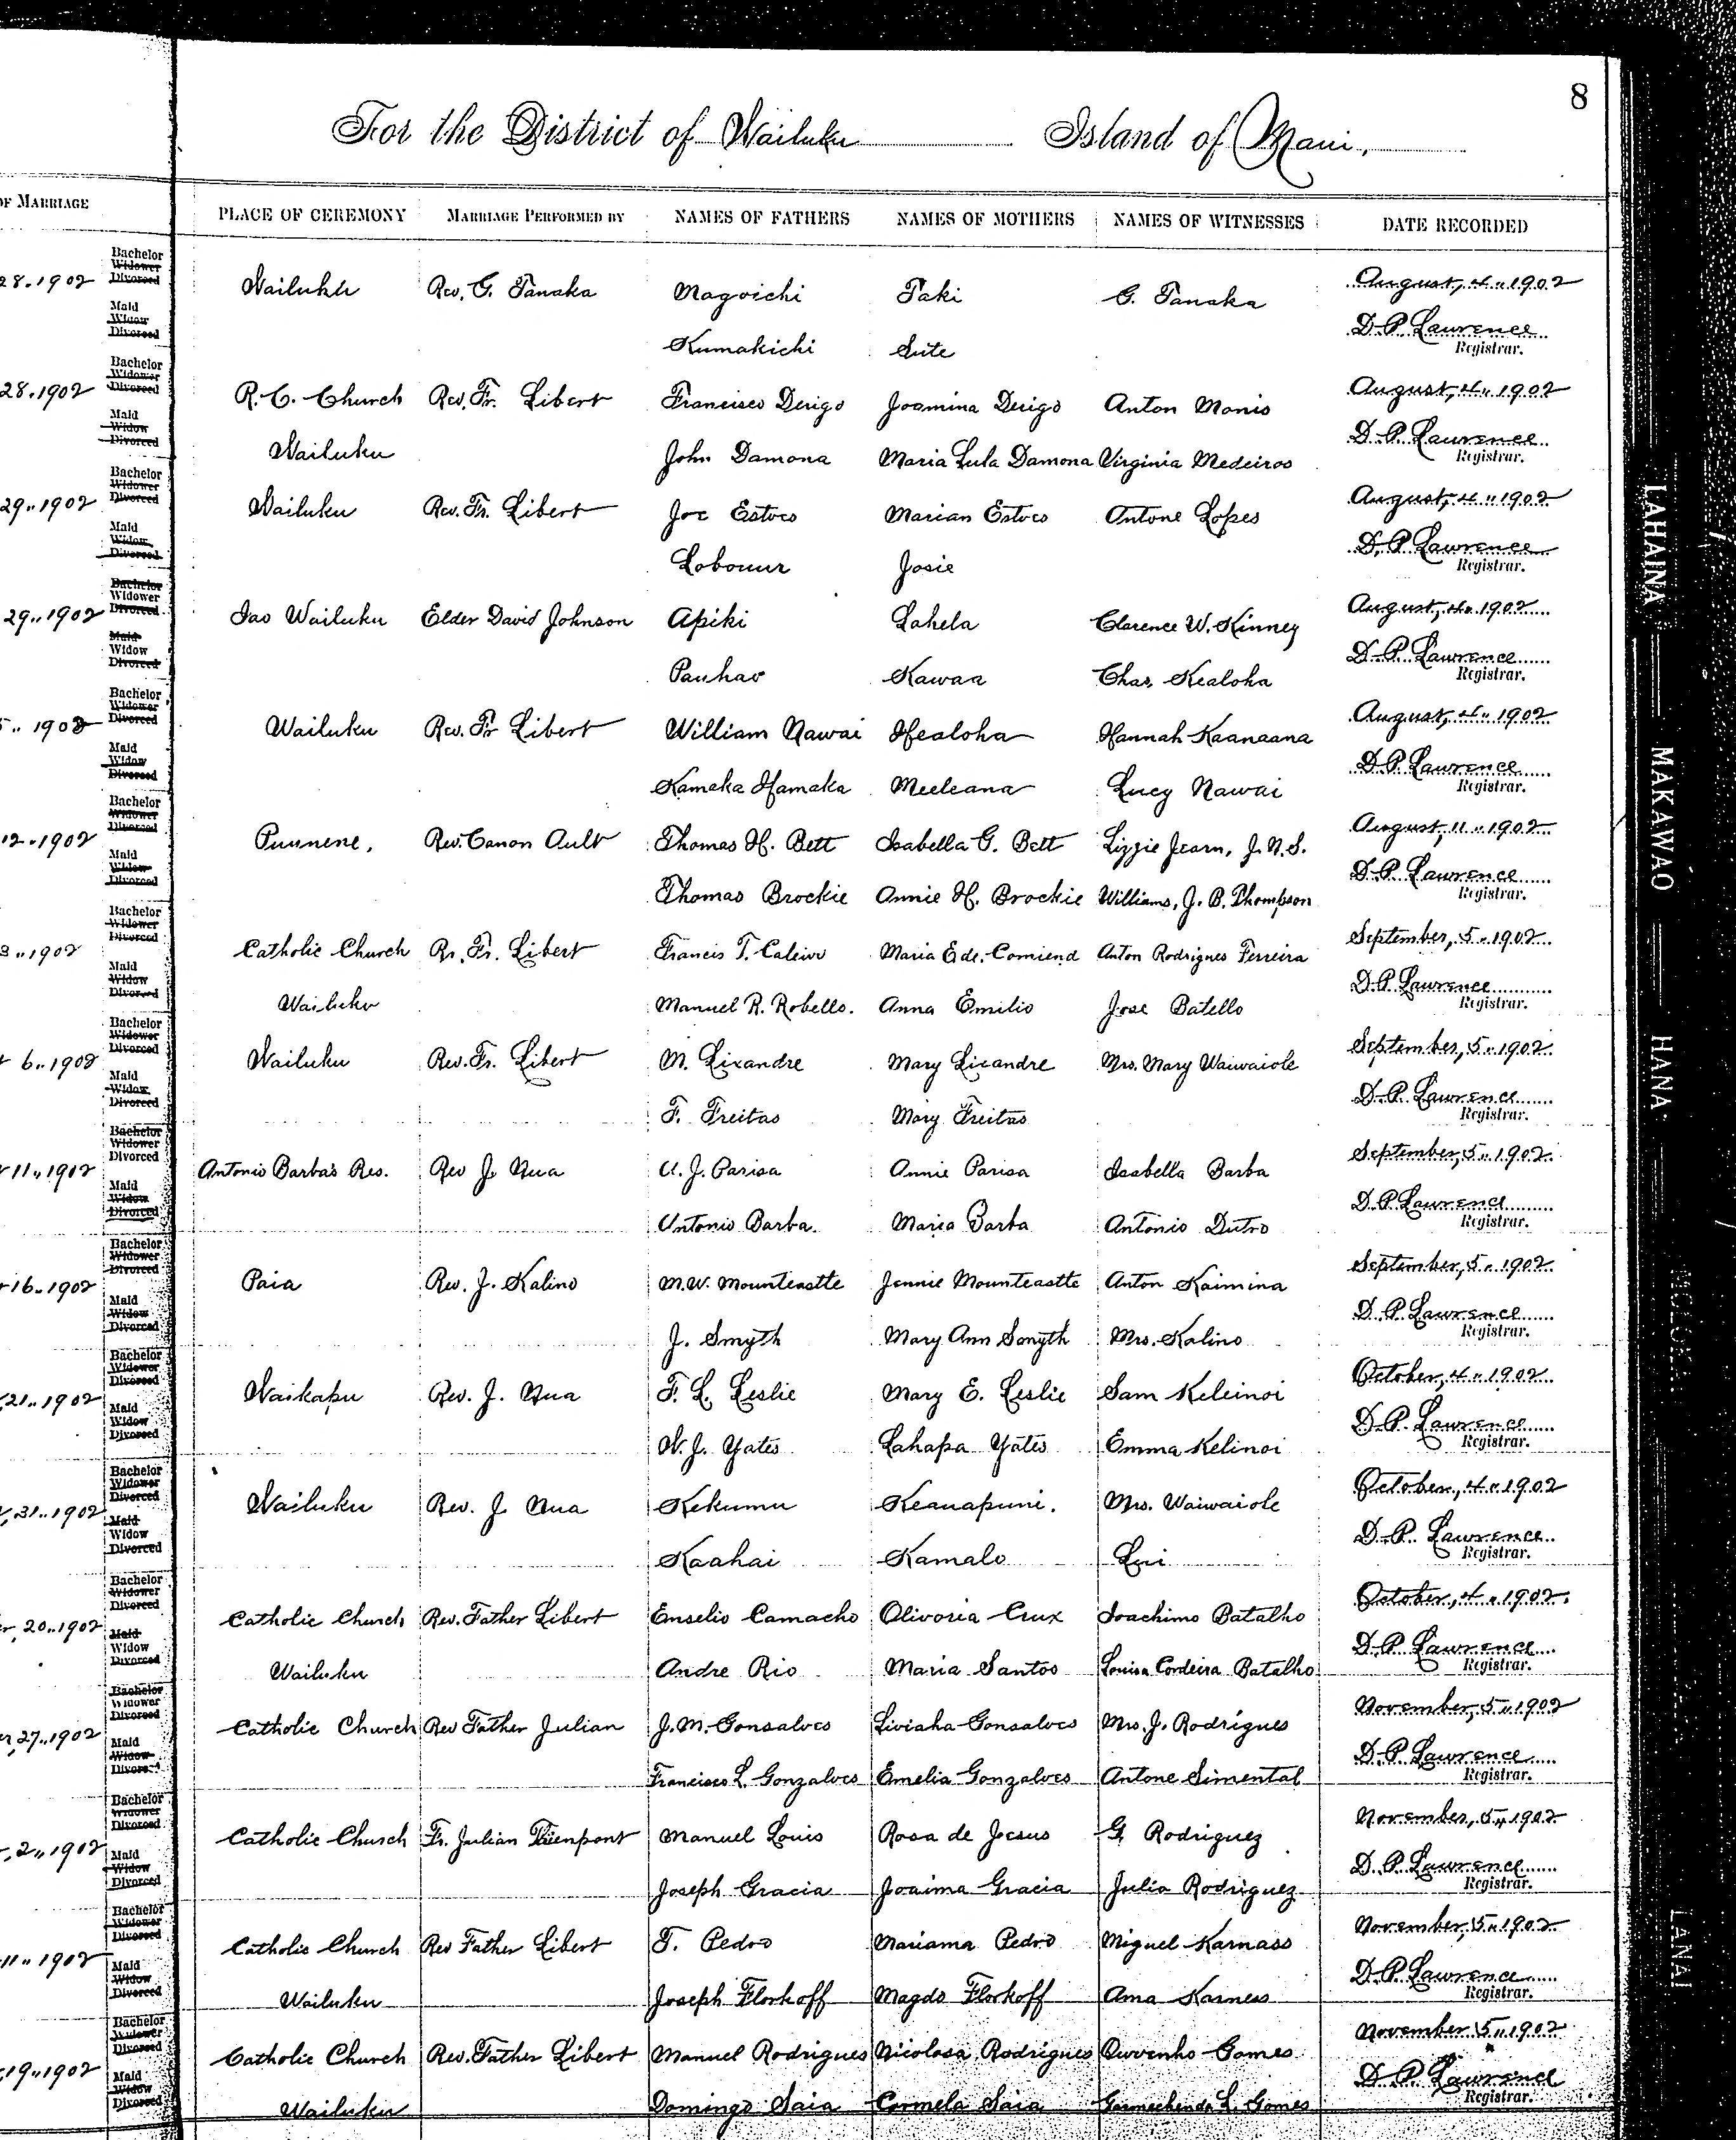 8
For the District of Wailuku Island of Maui.
OF MARRIAGE PLACE OF CEREMONY MARRIAGE PERFORMED BY NAMES OF FATHERS NAMES OF MOTHERS NAMES OF WITNESSES DATE RECORDED
28.1902 Bachelor Widower Divorced Wailuku Rev. G. Tanaka Magoichi Taki G. Tanaka August, 4.. 1902
Maid Widow Divorced Kumakichi Sute D. P. Lawrence Registrar.
28.1902 Bachelor Widower Divorced R. C. Church Rev. Fr. Libert Francisco Derigo Joamina Derigo Anton Monis August, 4.. 1902
Maid Widow Divorced Wailuku John Damona Maria Lula Damona Virginia Medeiros D. P. Lawrence Registrar.
29..1902 Bachelor Widower Divorced Wailuku Rev. Fr. Libert Joe Estves Marian Estves Antone Lopes August, 4.. 1902
Maid Widow Divorced Josie D. P. Lawrence Registrar.
29..1902 Bachelor Widower Divorced Iao Wailuku Elder David Johnson Apiki Lahela Clarence W. Kinney August, 4.. 1902
Maid Widow Divorced Pauhao Kawaa Chas Kealoha D. P. Lawrence Registrar.
5.. 1902 Bachelor Widower Divorced Wailuku Rev. Fr Libert William Nawai Healoha Hannah Kaanaana August, 4.. 1902
Maid Widow Divorced Kamaka Hamaka Meeleana Lucy Nawai D. P. Lawrence Registrar.
12.1902 Bachelor Widower Divorced Puunene, Rev. Canon Ault Thomas H. Bett Isabella G. Bett Lizzie Jearn, J. N. S. August, 11.. 1902
Maid Widow Divorced Thomas Brockie Annie H. Brockie Williams, J. B. Thompson D. P. Lawrence Registrar.
3..1902 Bachelor Widower Divorced Catholic Church Rr. Fr. Libert Francis T. Caleiro Maria E de. Comiend Anton Rodrigues Ferreira September, 5.. 1902
Maid Widow Divorced Wailuku Manuel R. Robello. Anna Emilio Jose Batello D. P. Lawrence Registrar.
6..1902 Bachelor Widower Divorced Wailuku Rev. Fr. Libert M. Lixandre Mary Licandre Mrs. Mary Waiwaiole September, 5.. 1902
Maid Widow Divorced F. Freitas Mary Freitas D. P. Lawrence Registrar.
11..1902 Bachelor Widower Divorced Antonio Barba's Res. Rev J. Nua A. J. Parisa Annie Parisa Isabella Barba September, 5.. 1902
Maid Widow Divorced Antonio Barba. Maria Barba Antonio Dutro D. P. Lawrence Registrar.
16..1902 Bachelor Widower Divorced Paia Rev. J. Kalino M. W. Mountcastle Jennie Mountcastle Anton Kaimina September, 5.. 1902
Maid Widow Divorced J. Smyth Mary Ann Smyth Mrs. Kalino D. P. Lawrence Registrar.
21..1902 Bachelor Widower Divorced Waikapu Rev. J. Nua F. L. Leslie Mary E. Leslie Sam Keleinoi October, 4.. 1902
Maid Widow Divorced W. J. Yates Lahapa Yates Emma Kelinoi D. P. Lawrence Registrar.
31..1902 Bachelor Widower Divorced Wailuku Rev. J Nua Kekumu Keauapuni. Mrs. Waiwaiole October, 4.. 1902
Maid Widow Divorced Kaahai Kamalo Lui D. P. Lawrence Registrar.
20..1902 Bachelor Widower Divorced Catholic Church Rev. Father Libert Enselio Camacho Olivoria Crux Joachimo Batalho October, 4.. 1902.
Maid Widow Divorced Wailuku Andre Rio Maria Santos Louisa Cordeira Batalho D. P. Lawrence Registrar.
27..1902 Bachelor Widower Divorced Catholic Church Rev Father Julian J. M. Gonsalves Liviaha Gonsalves Mrs. J. Rodrigues November, 5.. 1902
Maid Widow Divorced Francisco L. Gonzalves Emelia Gonzalves Antone Simental D. P. Lawrence Registrar.
2..1902 Bachelor Widower Divorced Catholic Church Fr. Julian Manuel Louis Rosa de Jesus G. Rodriguez November, 5.. 1902
Maid Widow Divorced Joseph Gracia Joaima Gracia Julia Rodriguez D. P. Lawrence Registrar.
11..1902 Bachelor Widower Divorced Catholic Church Rev Father Libert T. Pedro Mariama Pedro Miguel Karnass November, 5.. 1902
Maid Widow Divorced Wailuku Joseph Florkoff Magdo Florkoff Ama Karness D. P. Lawrence Registrar.
19..1902 Bachelor Widower Divorced Catholic Church Rev. Father Libert Manuel Rodrigues Nicolosa Rodrigues Gomes November 5.. 1902
Maid Widow Divorced Wailuku Domingo Saia Carmela Saia L. Gomes D. P. Lawrence Registrar.
LAHAINA
MAKAWAO
HANA
LANAI